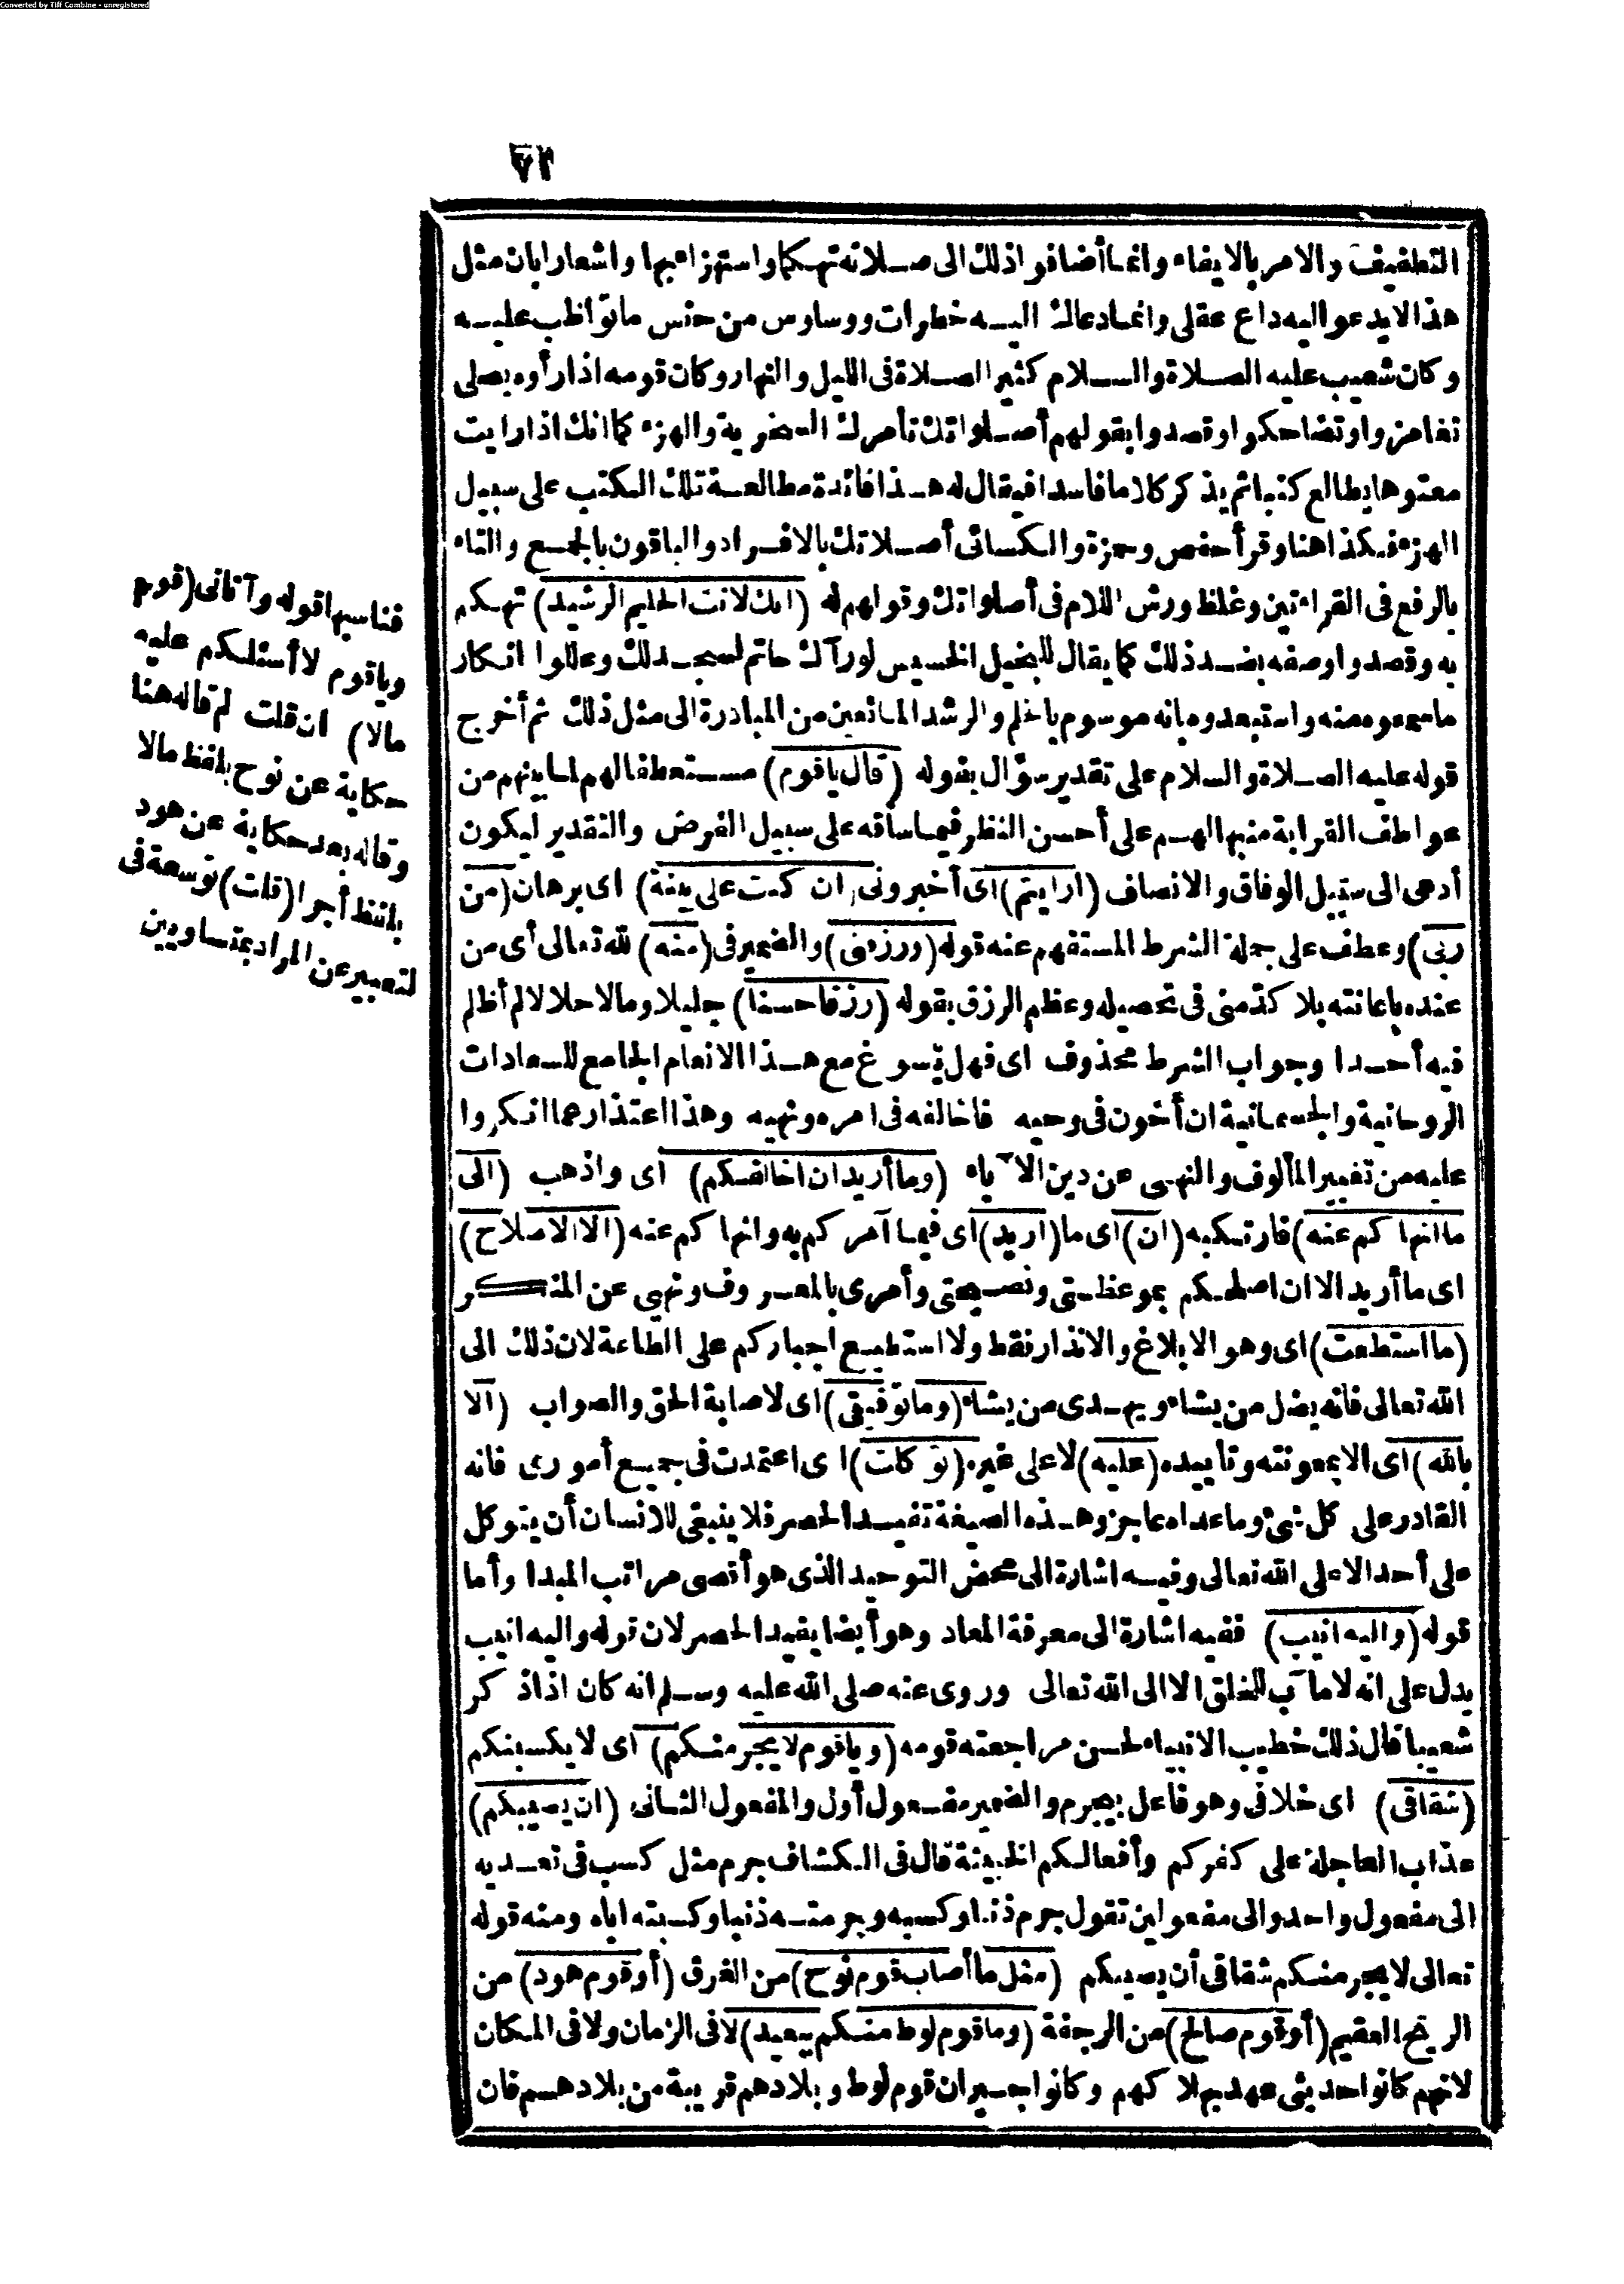 Converted by Tiff Combine - unregistered
٧٦
التطفيف والامر بالايفاء وانما أضافوا ذلك الى صلاته تهكما واستهزاء بها واشعارا بان مثل
هذا لا يدعو اليه داع عقلى وانما دعاك اليه خطرات ووساوس من جنس ما تواظب عليه
وكان شعيب عليه الصلاة والسلام كثير الصلاة فى الليل والنهار وكان قومه اذا رأوه يصلى
تغامزوا وتضاحكوا وقصدوا بقولهم أصلواتك تأمرك السخرية والهزء كما انك اذا رايت
معتوها يطالع كتبا ثم يذكر كلاما فاسدا فيقال له هذا فائدة مطالعة تلك الكتب على سبيل
الهزء فكذا هنا وقرأ حفص وحمزة والكسائى أصلاتك بالافراد والباقون بالجمع والتاء
بالرفع فى القراءتين وغلظ ورش اللام فى أصلواتك وقولهم له (انك لانت الحليم الرشيد) تهكم
به وقصدوا وصفه بضد ذلك كما يقال للبخيل الخسيس لو رآك حاتم لسجد لك وعللوا انكار
ما سمعوه منه واستبعدوه بانه موسوم بالحلم والرشد المانعين من المبادرة الى مثل ذلك ثم أخرج
قوله عليه الصلاة والسلام على تقدير سؤال بقوله (قال ياقوم) مستعطفا لهم لما بينهم من
عواطف القرابة منبها لهم على أحسن النظر فيما ساقه على سبيل الفرض والتقدير ليكون
أدعى الى سبيل الوفاق والانصاف (ارايتم) اى أخبرونى (ان كنت على بينة) اى برهان (من
ربى) وعطف على جملة الشرط المستفهم عنه قوله (ورزقنى) والضمير فى (منه) لله تعالى أى من
عنده باعانته بلا كد منى فى تحصيله وعظم الرزق بقوله (رزقا حسنا) جليلا ومالا حلالا لم أظلم
فيه أحدا وجواب الشرط محذوف اى فهل يسوغ مع هذا الانعام الجامع للسعادات
الروحانية والجسمانية ان أخون فى وحيه فاخالفه فى امره ونهيه وهذا اعتذار عما انكروا
عليه من تغيير المألوف والنهى عن دين الآباء (وما أريد ان اخالفكم) اى واذهب (الى
ما انها كم عنه) فارتكبه (ان) اى ما (اريد) اى فيما آمر كم به وانها كم عنه (الا الاصلاح)
اى ما أريد الا ان اصلحكم بموعظتى ونصيحتى وأمرى بالمعروف ونهيى عن المنكر
(ما استطعت) اى وهو الابلاغ والانذار فقط ولا استطيع اجباركم على الطاعة لان ذلك الى
الله تعالى فانه يضل من يشاء ويهدى من يشاء (وما توفيقى) اى لاصابة الحق والصواب (الا
بالله) اى الا بمعونته وتاييده (عليه) لا على غيره (توكلت) اى اعتمدت فى جميع أمورى فانه
القادر على كل شئ وما عداه عاجز وهذه الصيغة تفيد الحصر فلا ينبغى للانسان أن يتوكل
على أحد الا على الله تعالى وفيه اشارة الى محض التوحيد الذى هو أقصى مراتب المبدا وأما
قوله (واليه انيب) ففيه اشارة الى معرفة المعاد وهو أيضا يفيد الحصر لان قوله واليه انيب
يدل على انه لا مآب للخلق الا الى الله تعالى وروى عنه صلى الله عليه وسلم انه كان اذا ذكر
شعيبا قال ذلك خطيب الانبياء لحسن مراجعته قومه (وياقوم لا يجرمنكم) اى لا يكسبنكم
(شقاقى) اى خلافى وهو فاعل يجرم والضمير مفعول أول والمفعول الثانى (ان يصيبكم)
عذاب العاجلة على كفركم وأفعالكم الخبيثة قال فى الكشاف جرم مثل كسب فى تعديه
الى مفعول واحد والى مفعولين تقول جرم ذنبا وكسبه وجرمته ذنبا وكسبته اياه ومنه قوله
تعالى لا يجرمنكم شقاقى أن يصيبكم (مثل ما أصاب قوم نوح) من الغرق (أو قوم هود) من
الريح العقيم (أو قوم صالح) من الرجفة (وما قوم لوط منكم ببعيد) لا فى الزمان ولا فى المكان
لانهم كانوا حديثى عهد بهلاكهم وكانوا جيران قوم لوط وبلادهم قريبة من بلادهم فان
فناسبها قوله وآتانى (قوله
وياقوم لا أسئلكم عليه
مالا) ان قلت لم قاله هنا
حكاية عن نوح بلفظ مالا
وقاله بعد حكاية عن هود
بلفظ أجرا (قلت) توسعة فى
لتعبير عن المراد بمتساويين